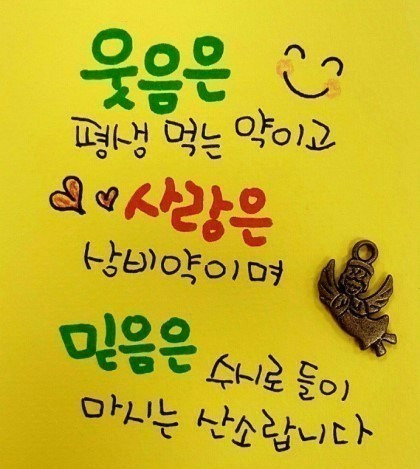 웃음은
평생 먹는 약이고
사랑은
상비약이며
믿음은 수시로 들이
마시는 산소랍니다